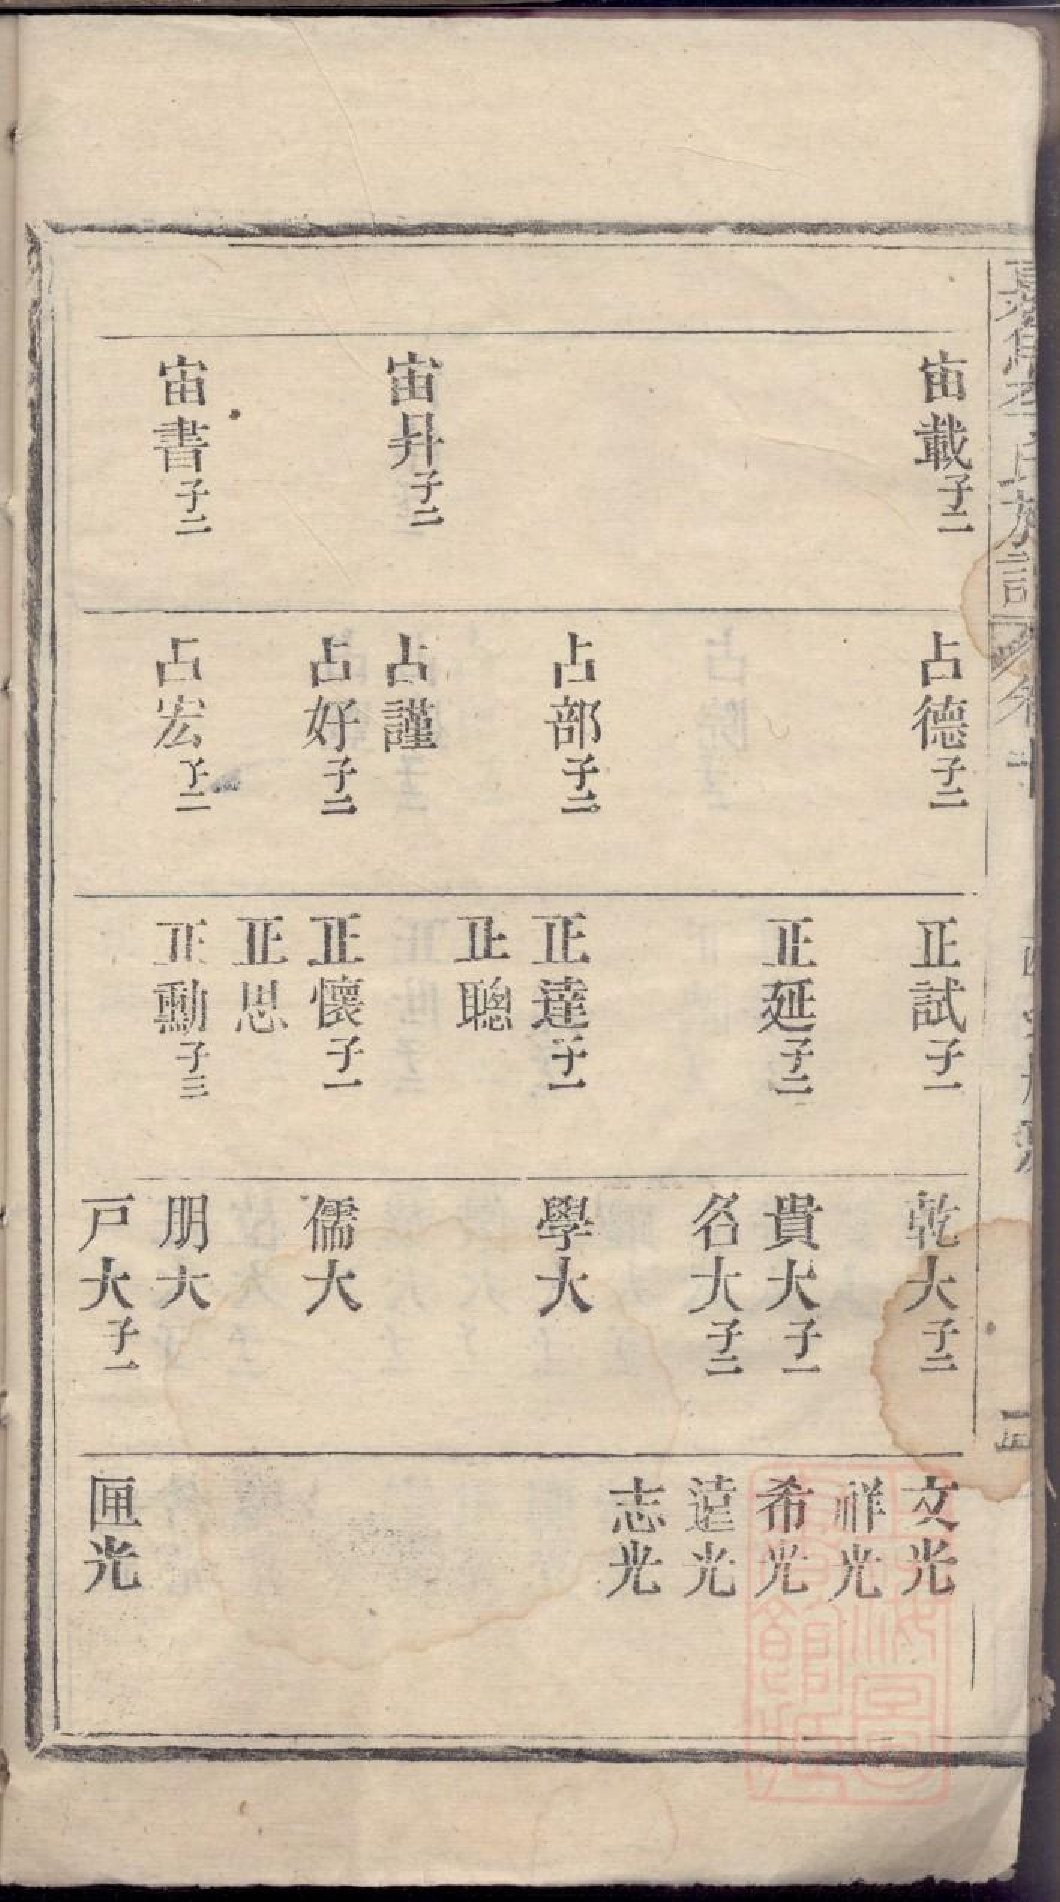 宙載子二
宙升子二
宙書子二
占德子二
占部子二
占謹
占好子二
占宏子二
正試子一
正延子二
正達子一
正聰
正懷子一
正思
正勳子三
乾大子二
貴大子一
名大子二
學大
儒大
朋大
戸大子一
文光
祥光
希光
遠光
志光
匣光